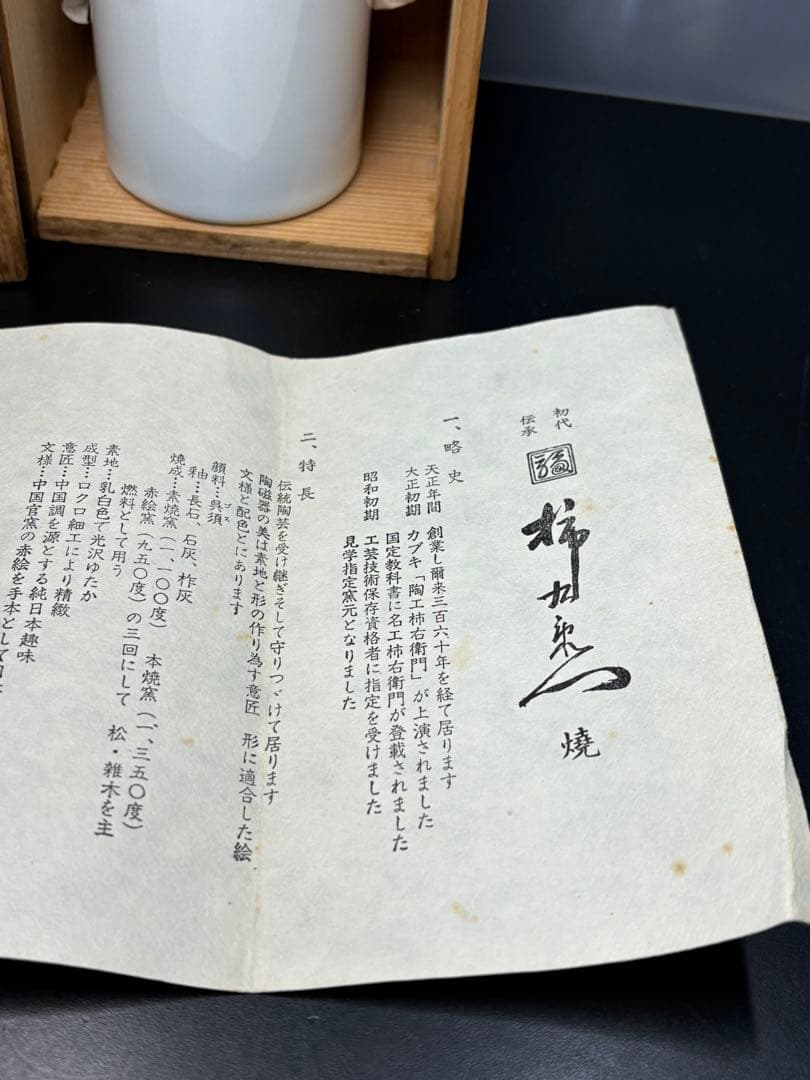 初代
伝承
柿右衛門
燒
一、略史
天正年間 創業し爾来三百六十年を経て居ります
大正初期 カブキ「陶工柿右衛門」が上演されました
国定教科書に名工柿右衛門が登載されました
昭和初期 工芸技術保存資格者に指定を受けました
見学指定窯元となりました
二、特長
伝統陶芸を受け継ぎそして守りつゞけて居ります
陶磁器の美は素地と形の作り為す意匠 形に適合した絵
文様と配色とにあります
顔料…呉須
ゴス
釉…長石、石灰、柞灰
焼成…素焼窯(一、一〇〇度) 本焼窯(一、三五〇度)
赤絵窯(九五〇度) の三回にして 松・雑木を主
燃料として用う
素地…乳白色で光沢ゆたか
成型…ロクロ細工により精緻
意匠…中国調を源とする純日本趣味
文様…中国官窯の赤絵を手本として